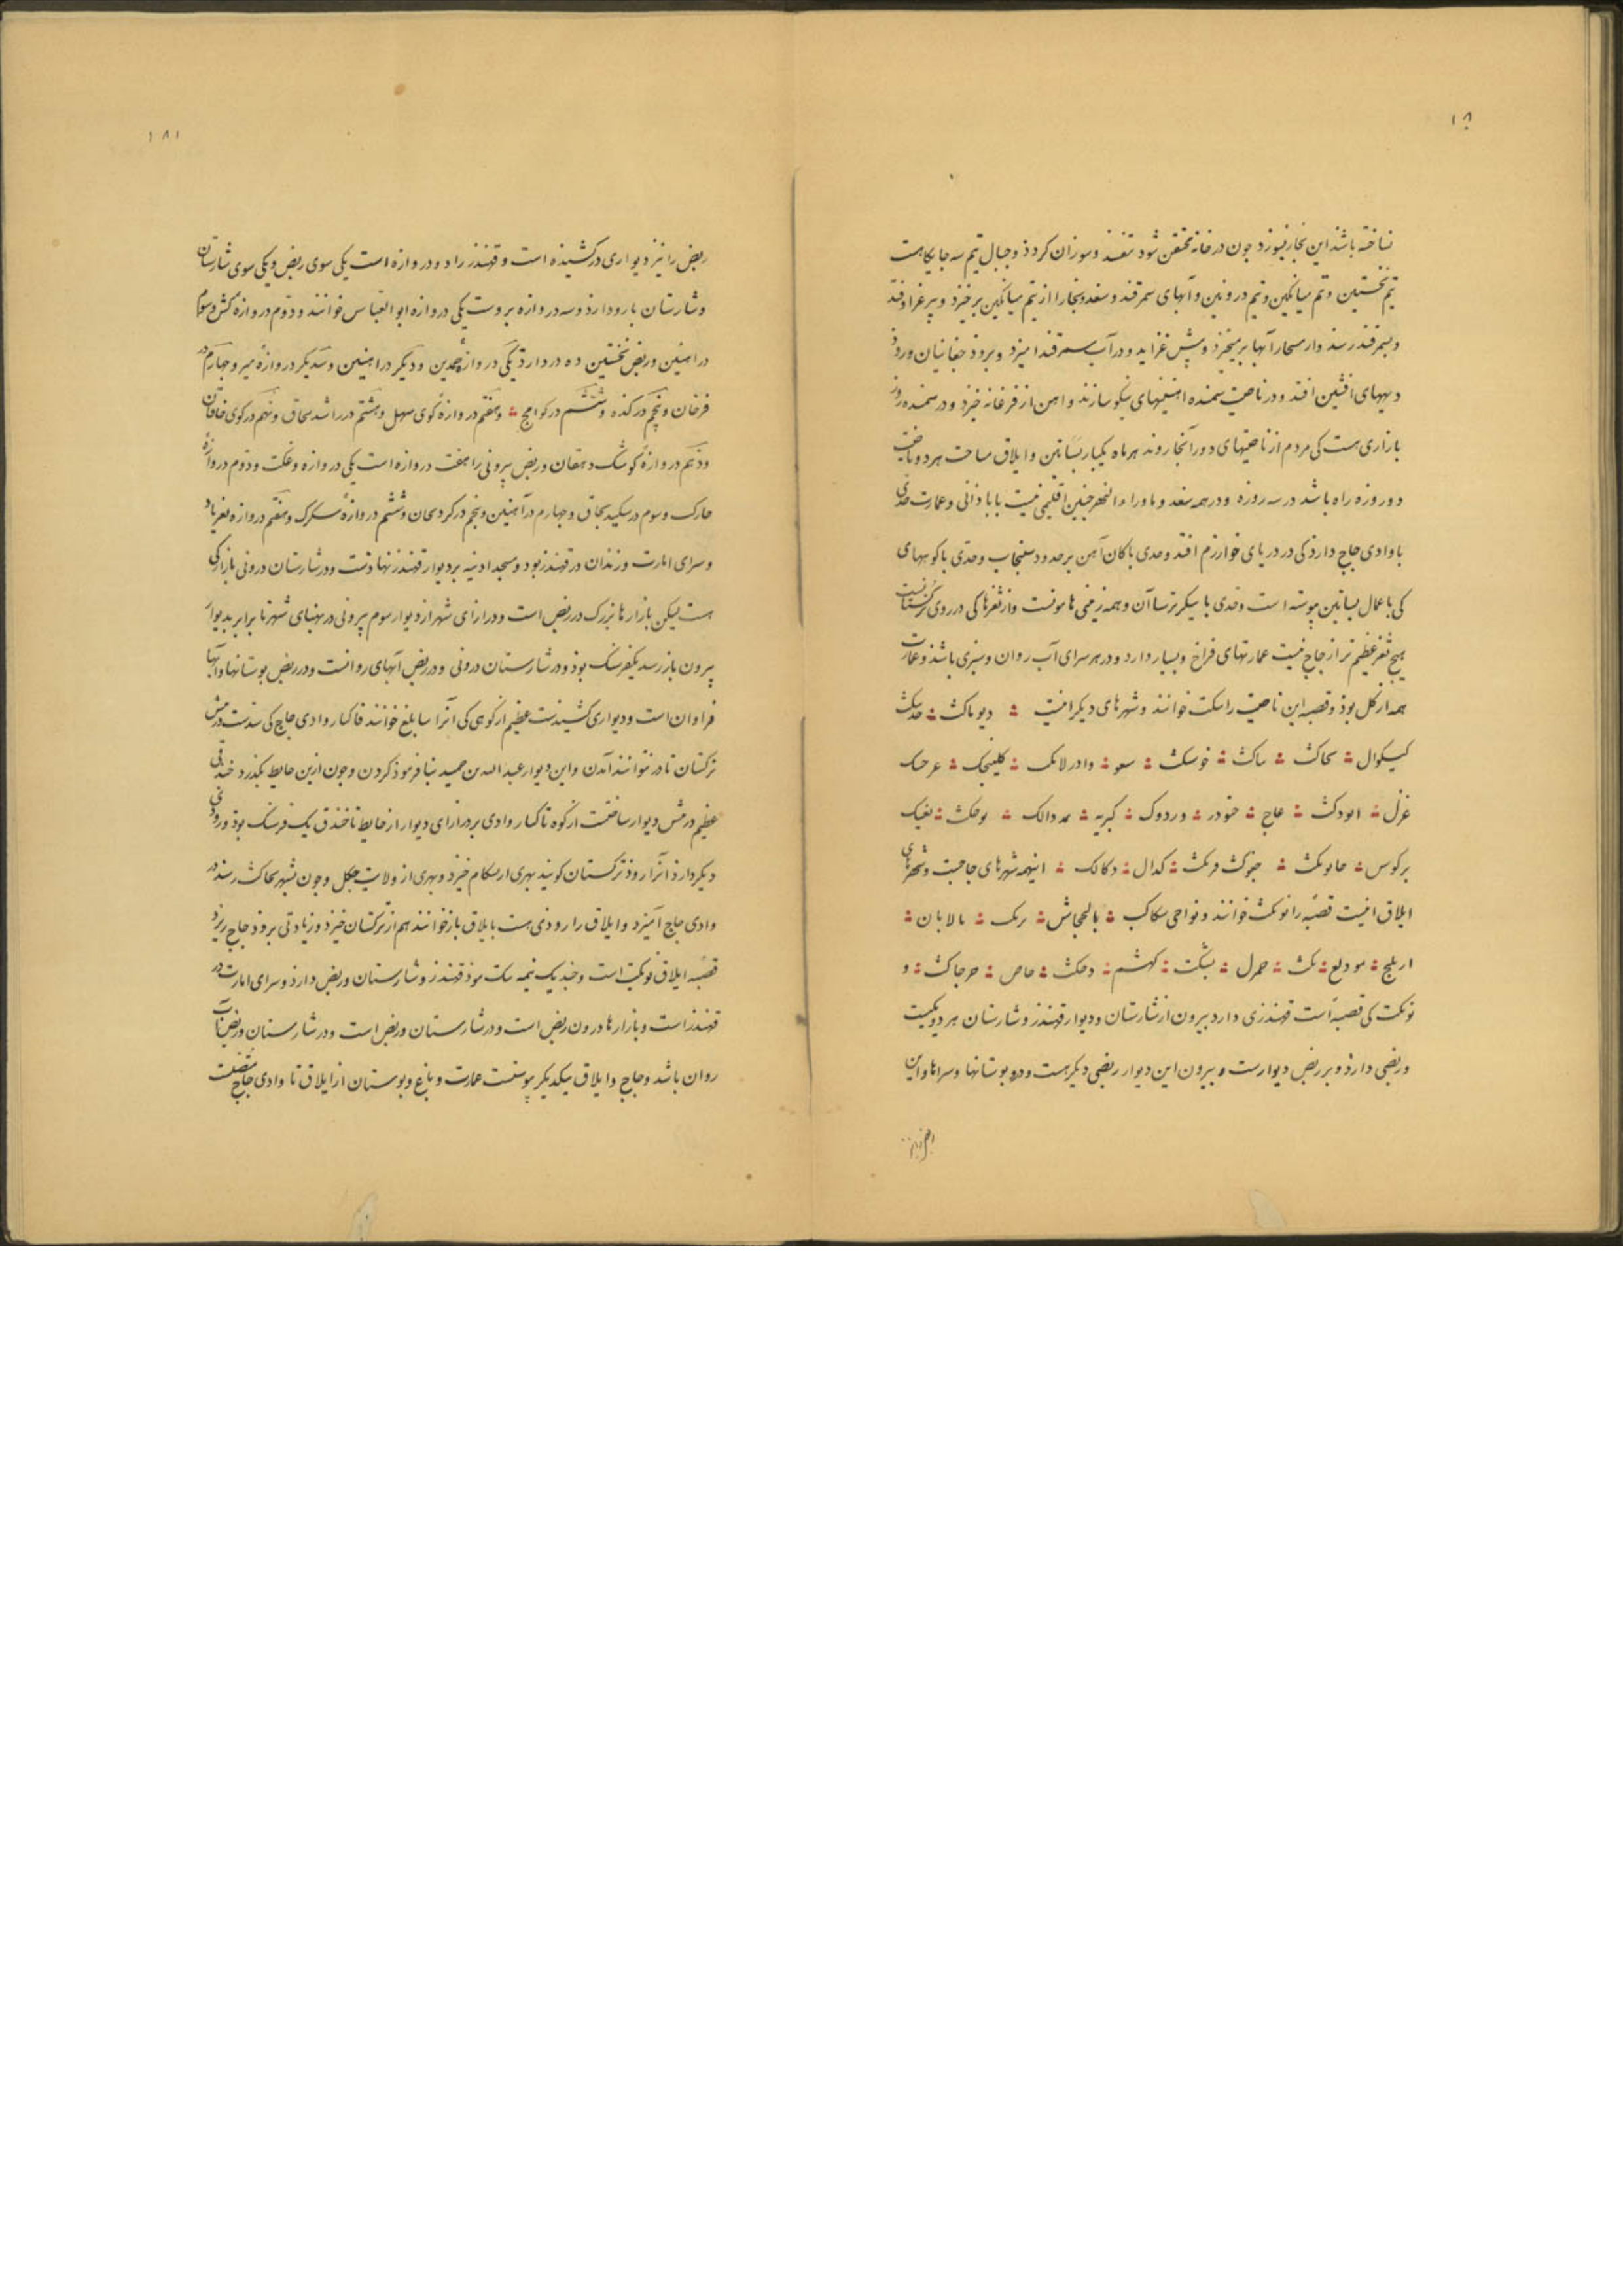 ۱۸
نساخته باشند این بخار نبوزد چون در خانه محتقن شود تفسد وسوزان کردد وجبال تیم سه جایکاهست
تیم نخستین وتیم میانکین وتیم درونین وآبهای سمرقند وسغد وبخارا از تیم میانکین برخیزد
وبسمرقند رسد آبها برمیخیزد ودر آب سمرقند امیزد وبروذ جغانیان ورود
دیههای افتد ودر ناحیت سمنده اهنینهای نیکو سازند واهن از فرغانه خیزد ودر سمنده روز
بازاری هست کی مردم از ناحیتهای دور آنجا روند هر ماه یکبار بساتین وایلاق مساحت هر دو ناحیت
دو روزه راه باشد در سه روزه ودر همه سغد وماوراء النهر جنین اقلیمی نیست بابادانی وعمارت حدی
با وادی جاج دارد کی در دریای خوارزم افتد وحدی با کان آهن بر حدود سنجاب وحدی با کوههای
کی با عمال بساتین پیوسته است وحدی با سیکر ترساآن وهمه زمینی هامونست واز ثغرها کی در روی ترکستانست
هیچ ثغر عظیم تر از جاج نیست عمارتهای فراخ وبسیار دارد ودر هر سرای آب روان وسبزی باشد وعمارت
همه از کل بود وقصبه این ناحیت را سکت خوانند وشهرهای دیکر اینست دیوناکث
کیسکوال کاکث ساکث خوسکث سعو وادرلانک کلینجک عرحک
غزل انودکث عاج خودر وردوک کبریه مدوالک نوحکث نغیک
برکوس حابونکث جنوکث فرنکث کدال دکالک اینهمه شهرهای جاجست وشهرهای
ایلاق اینست قصبه را نونکث خوانند ونواحی سکاکب بالجخاش برنک بالابان
اربلج مودیع تکث حمرل بسکت کهشم دحکث حاص حرجاکث و
نونکت کی قصبه است قهندزی دارد بیرون از شارستان ودیوار قهندز وشارستان هر دو یکیست
وربضی دارد وبر ربض دیوارست وبیرون این دیوار ربضی دیکر هست ودرو بوستانها وسراها واین
۱۸۱
ربض را نیز دیواری در کشیده است وقهندز را دو دروازه است یکی سوی ربض ویکی سوی شارستان
وشارستان بارو دارد وسه دروازه بروست یکی دروازه ابو العباس خوانند ودوم دروازه کش وسوم
در اهنین وربض نخستین ده در دارد یکی دروازه حمدین ودیکر در اهنین وسدیکر دروازه میر وچهارم در
فرخان وپنجم در کنده وششم در کرامج وهفتم دروازه کوی سهل وهشتم در راشد سحاق ونهم در کوی خاقان
ودهم دروازه کوشک دهقان وربض بیرونی را هفت دروازه است یکی دروازه وعکت ودوم دروازه
خارک وسوم در سکید سحاق وچهارم در آهنین وپنجم در کردسحان وششم دروازه سکرک وهفتم دروازه بغرباد
وسرای امارت وزندان در قهندز بود ومسجد ادینه بر دیوار قهندز نهادست ودر شارستان درونی بازارکی
هست لیکن بازارها بزرک در ربض است ودرازای شهر از دیوار سوم بیرونی در پهنای شهر تا برابر بدیوار
بیرون باز رسد یکفرسنک بود ودر شارستان درونی ودر ربض آبهای روانست ودر ربض بوستانها وآبها
فراوان است ودیواری کشیدست عظیم از کوهی کی آنرا سابلغ خوانند تا کنار وادی جاج کی سدست در پیش
ترکستان تا در نتوانند آمدن واین دیوار عبد الله بن حمید بنا فرمود کردن وچون ازین حایط بکذرد خندقی
عظیم در پیش دیوار ساختست از کوه تا کنار وادی بر درازای دیوار از حایط تا خندق یک فرسنک بود ورودی
دیکر دارد آنرا رود ترکستان کویند بهری از سکام خیزد وبهری از ولایت جکل وچون بشهر بحاکث رسد در
وادی جاج آمیزد وایلاق را رودی هست بایلاق باز خوانند هم از ترکستان خیزد وزیادتی برود جاج ریزد
قصبه ایلاق نونکت است وچند یک نیمه سکت بود قهندز وشارستان وربض دارد وسرای امارت در
قهندز است وبازارها درون ربض است ودر شارستان وربض است ودر شارستان وربض آب
روان باشد وجاج وایلاق بیکدیکر پیوستست عمارت وباغ وبوستان از ایلاق تا وادی جاج متصلست